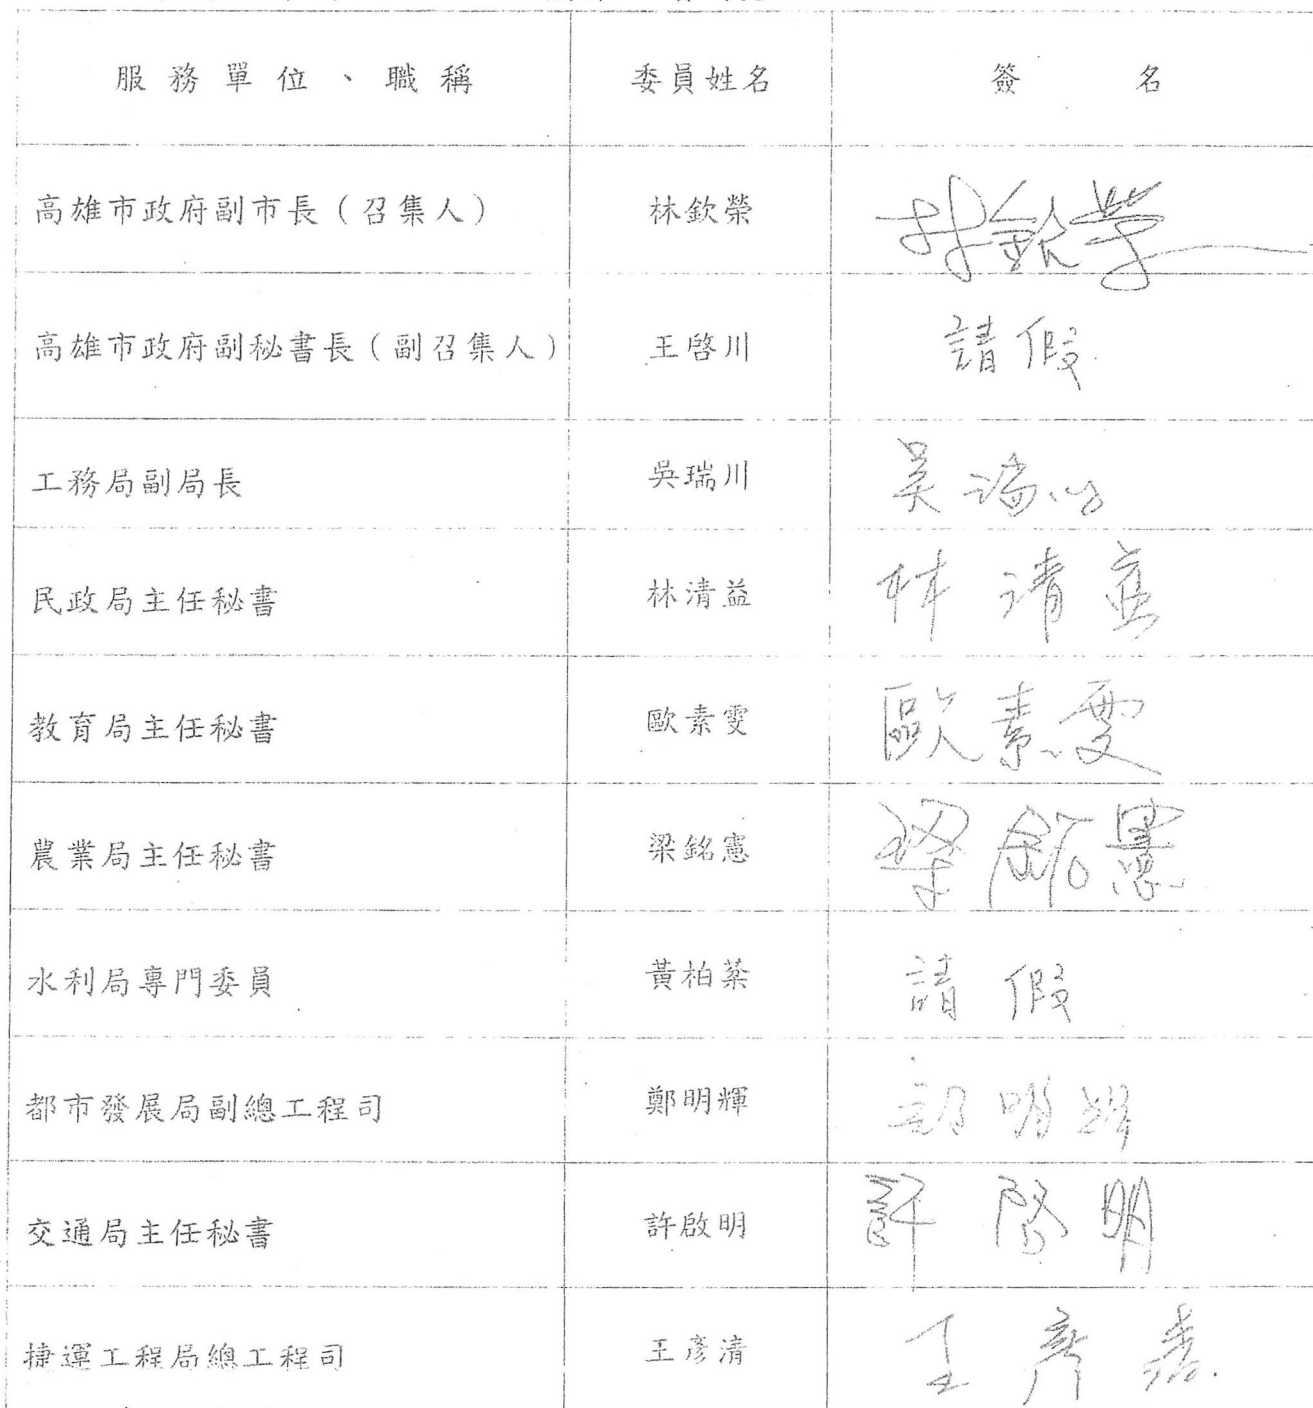 服務單位、職稱 委員姓名 簽名
高雄市政府副市長（召集人） 林欽榮 林欽榮
高雄市政府副秘書長（副召集人） 王啓川 請假
工務局副局長 吳瑞川 吳瑞川
民政局主任秘書 林清益 林清益
教育局主任秘書 歐素雯 歐素雯
農業局主任秘書 梁銘憲 梁銘憲
水利局專門委員 黃柏棻 請假
都市發展局副總工程司 鄭明輝 鄭明輝
交通局主任秘書 許啟明 許啟明
捷運工程局總工程司 王彥清 王彥清